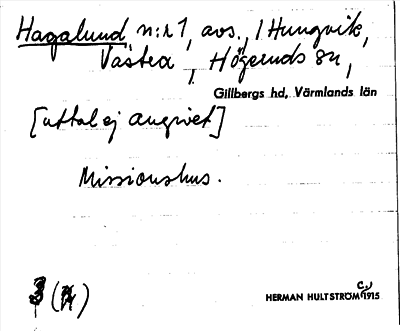 Hagalund n:r 1, avs., / Hungvik,
Västra, Högeruds sn,
Gillbergs hd, Värmlands län
[uttal ej angivet]
Missionshus.
3 (4)
HERMAN HULTSTRÖM C:a 1915